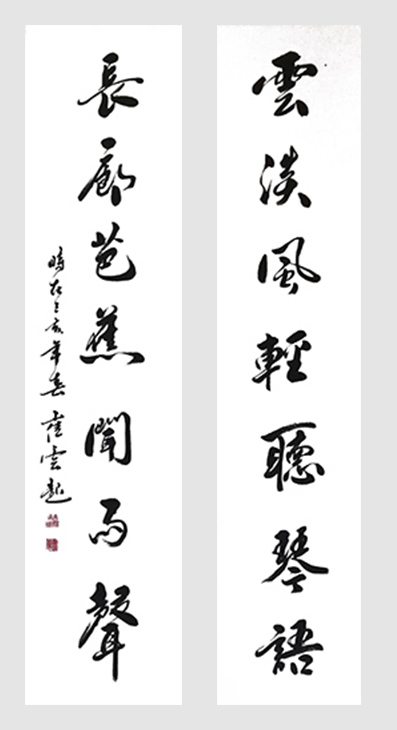 雲淡風輕聽琴語
長廊芭蕉聞雨聲
時在己亥年春 崔雲